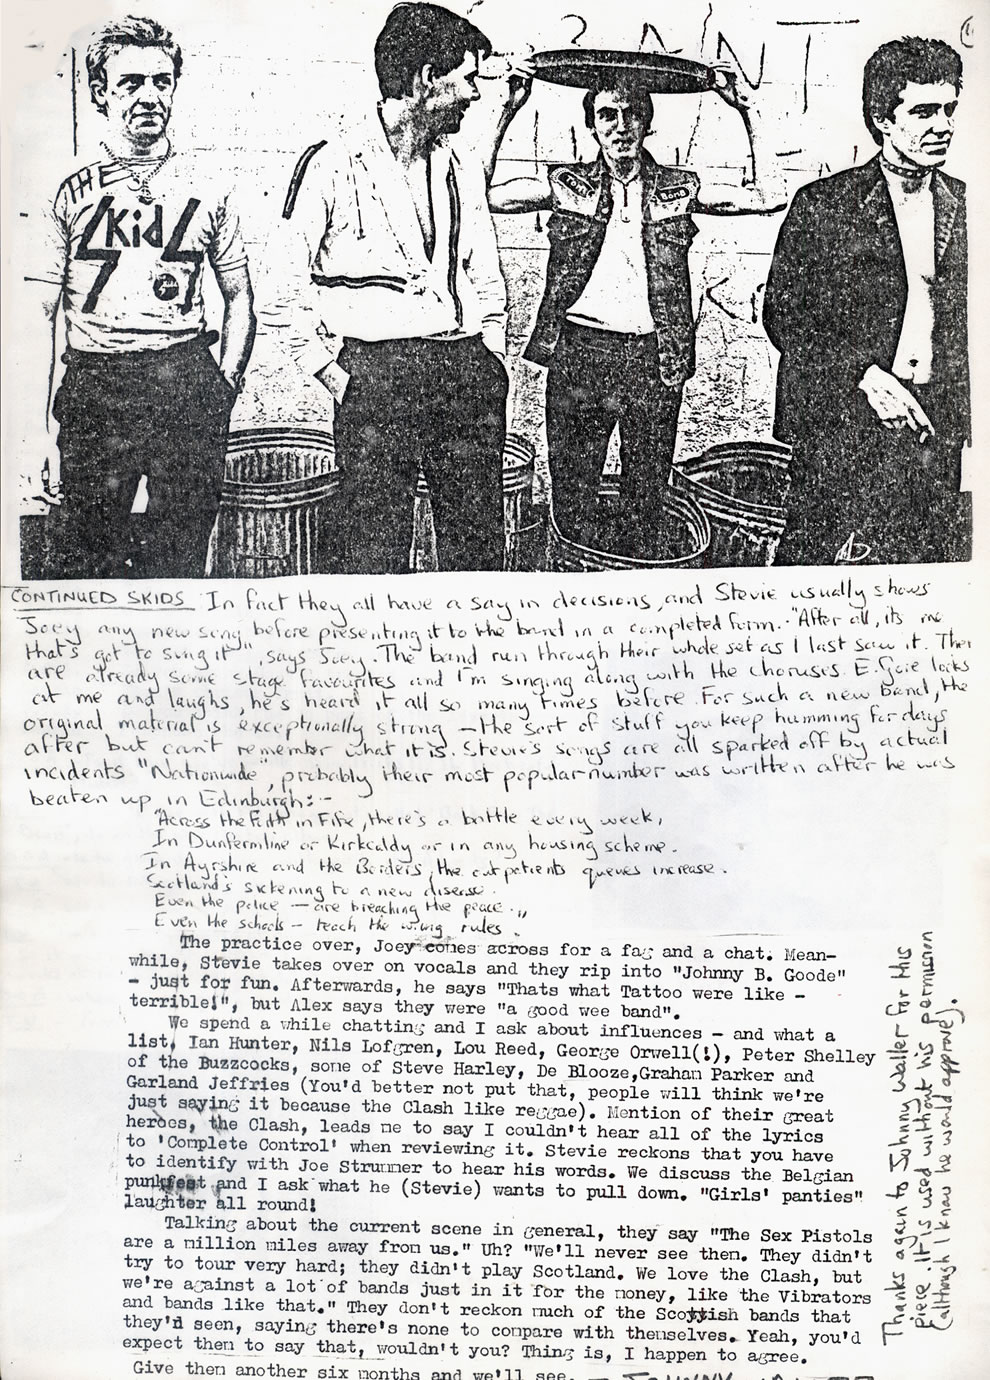 THE
Skids
TONI
Bomb
CONTINUED SKIDS In fact they all have a say in decisions, and Stevie usually shows
Joey any new song before presenting it to the band in a completed form. "After all, its me
that's got to sing it", says Joey. The band run through their whole set as I last saw it. Ther
are already some stage favourites and I'm singing along with the choruses. E. Goie looks
at me and laughs, he's heard it all so many times before. For such a new band, the
original material is exceptionally strong - the sort of stuff you keep humming for days
after but can't remember what it is. Stevie's songs are all sparked off by actual
incidents "Nationwide", probably their most popular number was written after he was
beaten up in Edinburgh:-
"Across the Forth in Fife, there's a battle every week,
In Dunfermline or Kirkcaldy or in any housing scheme.
In Ayrshire and the Borders, the outpatients queues increase.
Scotland's sickening to a new disease.
Even the police - are breaching the peace.
Even the schools - teach the wrong rules."
The practice over, Joey comes across for a fag and a chat. Mean-
while, Stevie takes over on vocals and they rip into "Johnny B. Goode"
- just for fun. Afterwards, he says "Thats what Tattoo were like -
terrible!", but Alex says they were "a good wee band".
We spend a while chatting and I ask about influences - and what a
list, Ian Hunter, Nils Lofgren, Lou Reed, George Orwell(!), Peter Shelley
of the Buzzcocks, some of Steve Harley, De Blooze,Graham Parker and
Garland Jeffries (You'd better not put that, people will think we're
just saying it because the Clash like reggae). Mention of their great
heroes, the Clash, leads me to say I couldn't hear all of the lyrics
to 'Complete Control' when reviewing it. Stevie reckons that you have
to identify with Joe Strummer to hear his words. We discuss the Belgian
punkfest and I ask what he (Stevie) wants to pull down. "Girls' panties"
laughter all round!
Talking about the current scene in general, they say "The Sex Pistols
are a million miles away from us." Uh? "We'll never see them. They didn't
try to tour very hard; they didn't play Scotland. We love the Clash, but
we're against a lot of bands just in it for the money, like the Vibrators
and bands like that." They don't reckon much of the Scottish bands that
they'd seen, saying there's none to compare with themselves. Yeah, you'd
expect them to say that, wouldn't you? Thing is, I happen to agree.
Give them another six months and we'll see. - JOHNNY
Thanks again to Johnny Waller for this
piece. It is used without his permission
(although I know he would approve).